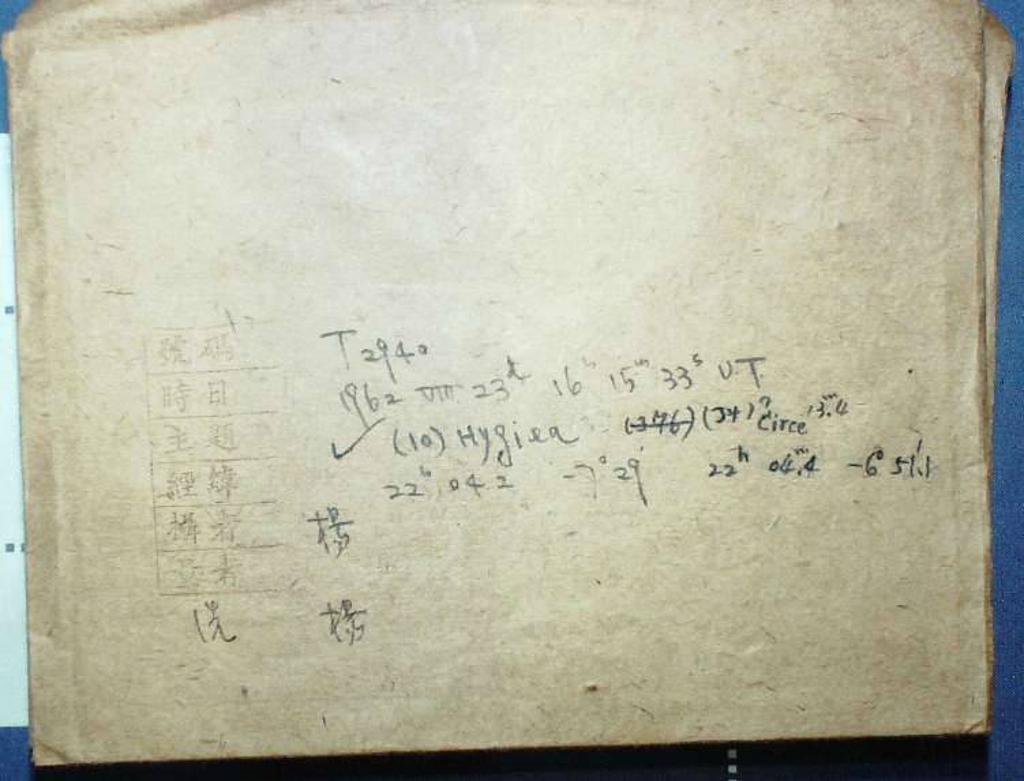 號碼 T2940
時日 1962 VIII 23d 16h 15m 33s UT
主題 ✓ (10) Hygiea (34)? Circe 13m.4
經緯 22h 04.2 -7° 29' 22h 04m.4 -6° 51'.1
攝者 楊
洗 楊